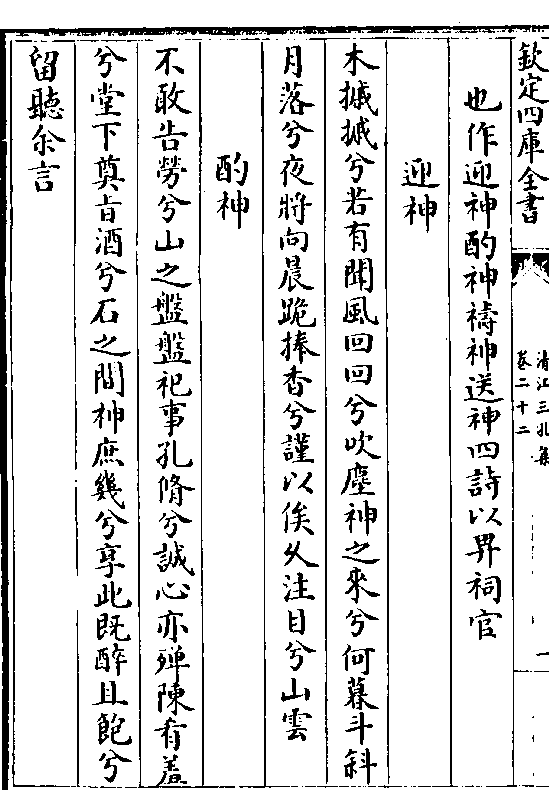 欽定四庫全書
清江三孔集
卷二十二
也作迎神酌神禱神送神四詩以畀祠官
迎神
木摵摵兮若有聞風回回兮吹塵神之來兮何暮斗斜
月落兮夜將向晨跪捧香兮謹以俟久注目兮山雲
酌神
不敢告勞兮山之盤盤祀事孔脩兮誠心亦殫陳肴羞
兮堂下奠旨酒兮石之間神庶幾兮享此既醉且飽兮
留聽余言